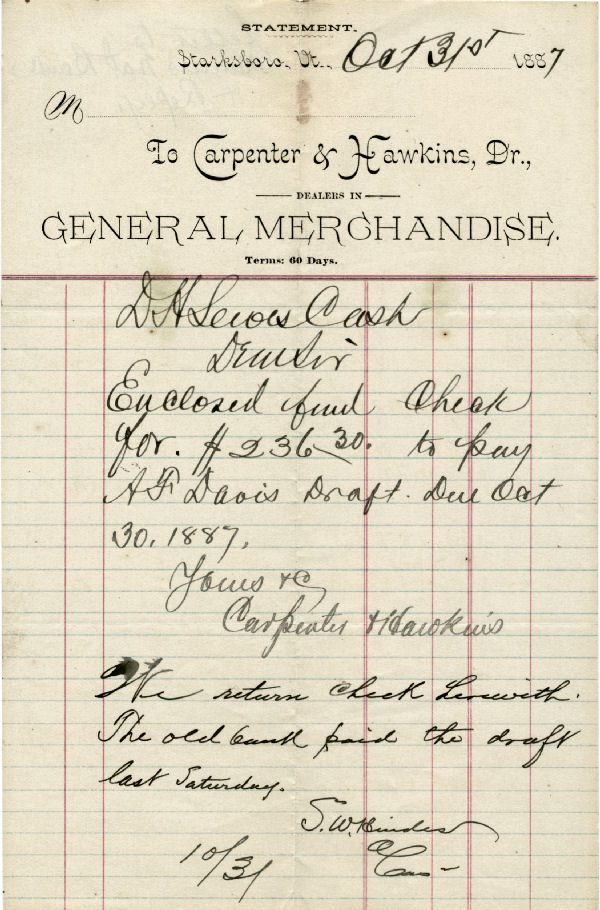 STATEMENT.
Starksboro, Vt., Oct 31st 1887
M
To Carpenter & Hawkins, Dr.,
DEALERS IN
GENERAL MERCHANDISE.
Terms: 60 Days.
D H Lewis Cash
Dear Sir
Enclosed find Check
for. $236 30. to pay
A F Davis Draft. Due Oct
30, 1887,
Yours &C
Carpenter & Hawkins
We return check herewith.
The old bank paid the draft
last Saturday.
S. W. Hindes
Cas
10/31